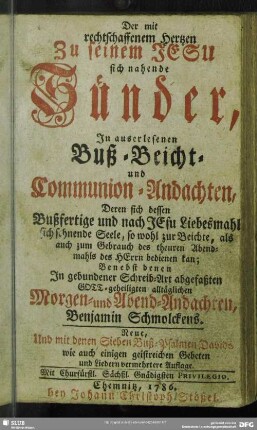 Der mit
rechtschaffenem Hertzen
Zu seinem JESU
sich nahende
Sünder,
In auserlesenen
Buß-Beicht-
und
Communion-Andachten,
Deren sich dessen
Bußfertige und nach JEsu Liebesmahl
sich sehnende Seele, so wohl zur Beichte, als
auch zum Gebrauch des theuren Abend-
mahls des HErrn bedienen kan;
Benebst denen
In gebundener Schreib-Art abgefaßten
GOTT-geheiligten alltäglichen
Morgen-und Abend-Andachten,
Benjamin Schmolckens.
Neue,
Und mit denen Sieben Buß-Psalmen Davids
wie auch einigen geistreichen Gebeten
und Liedern vermehrtere Auflage.
Mit Churfürstl. Sächs. Gnädigsten PRIVILEGIO.
Chemnitz, 1786.
bey Johann Christoph Stößel.
SLUB
DFG